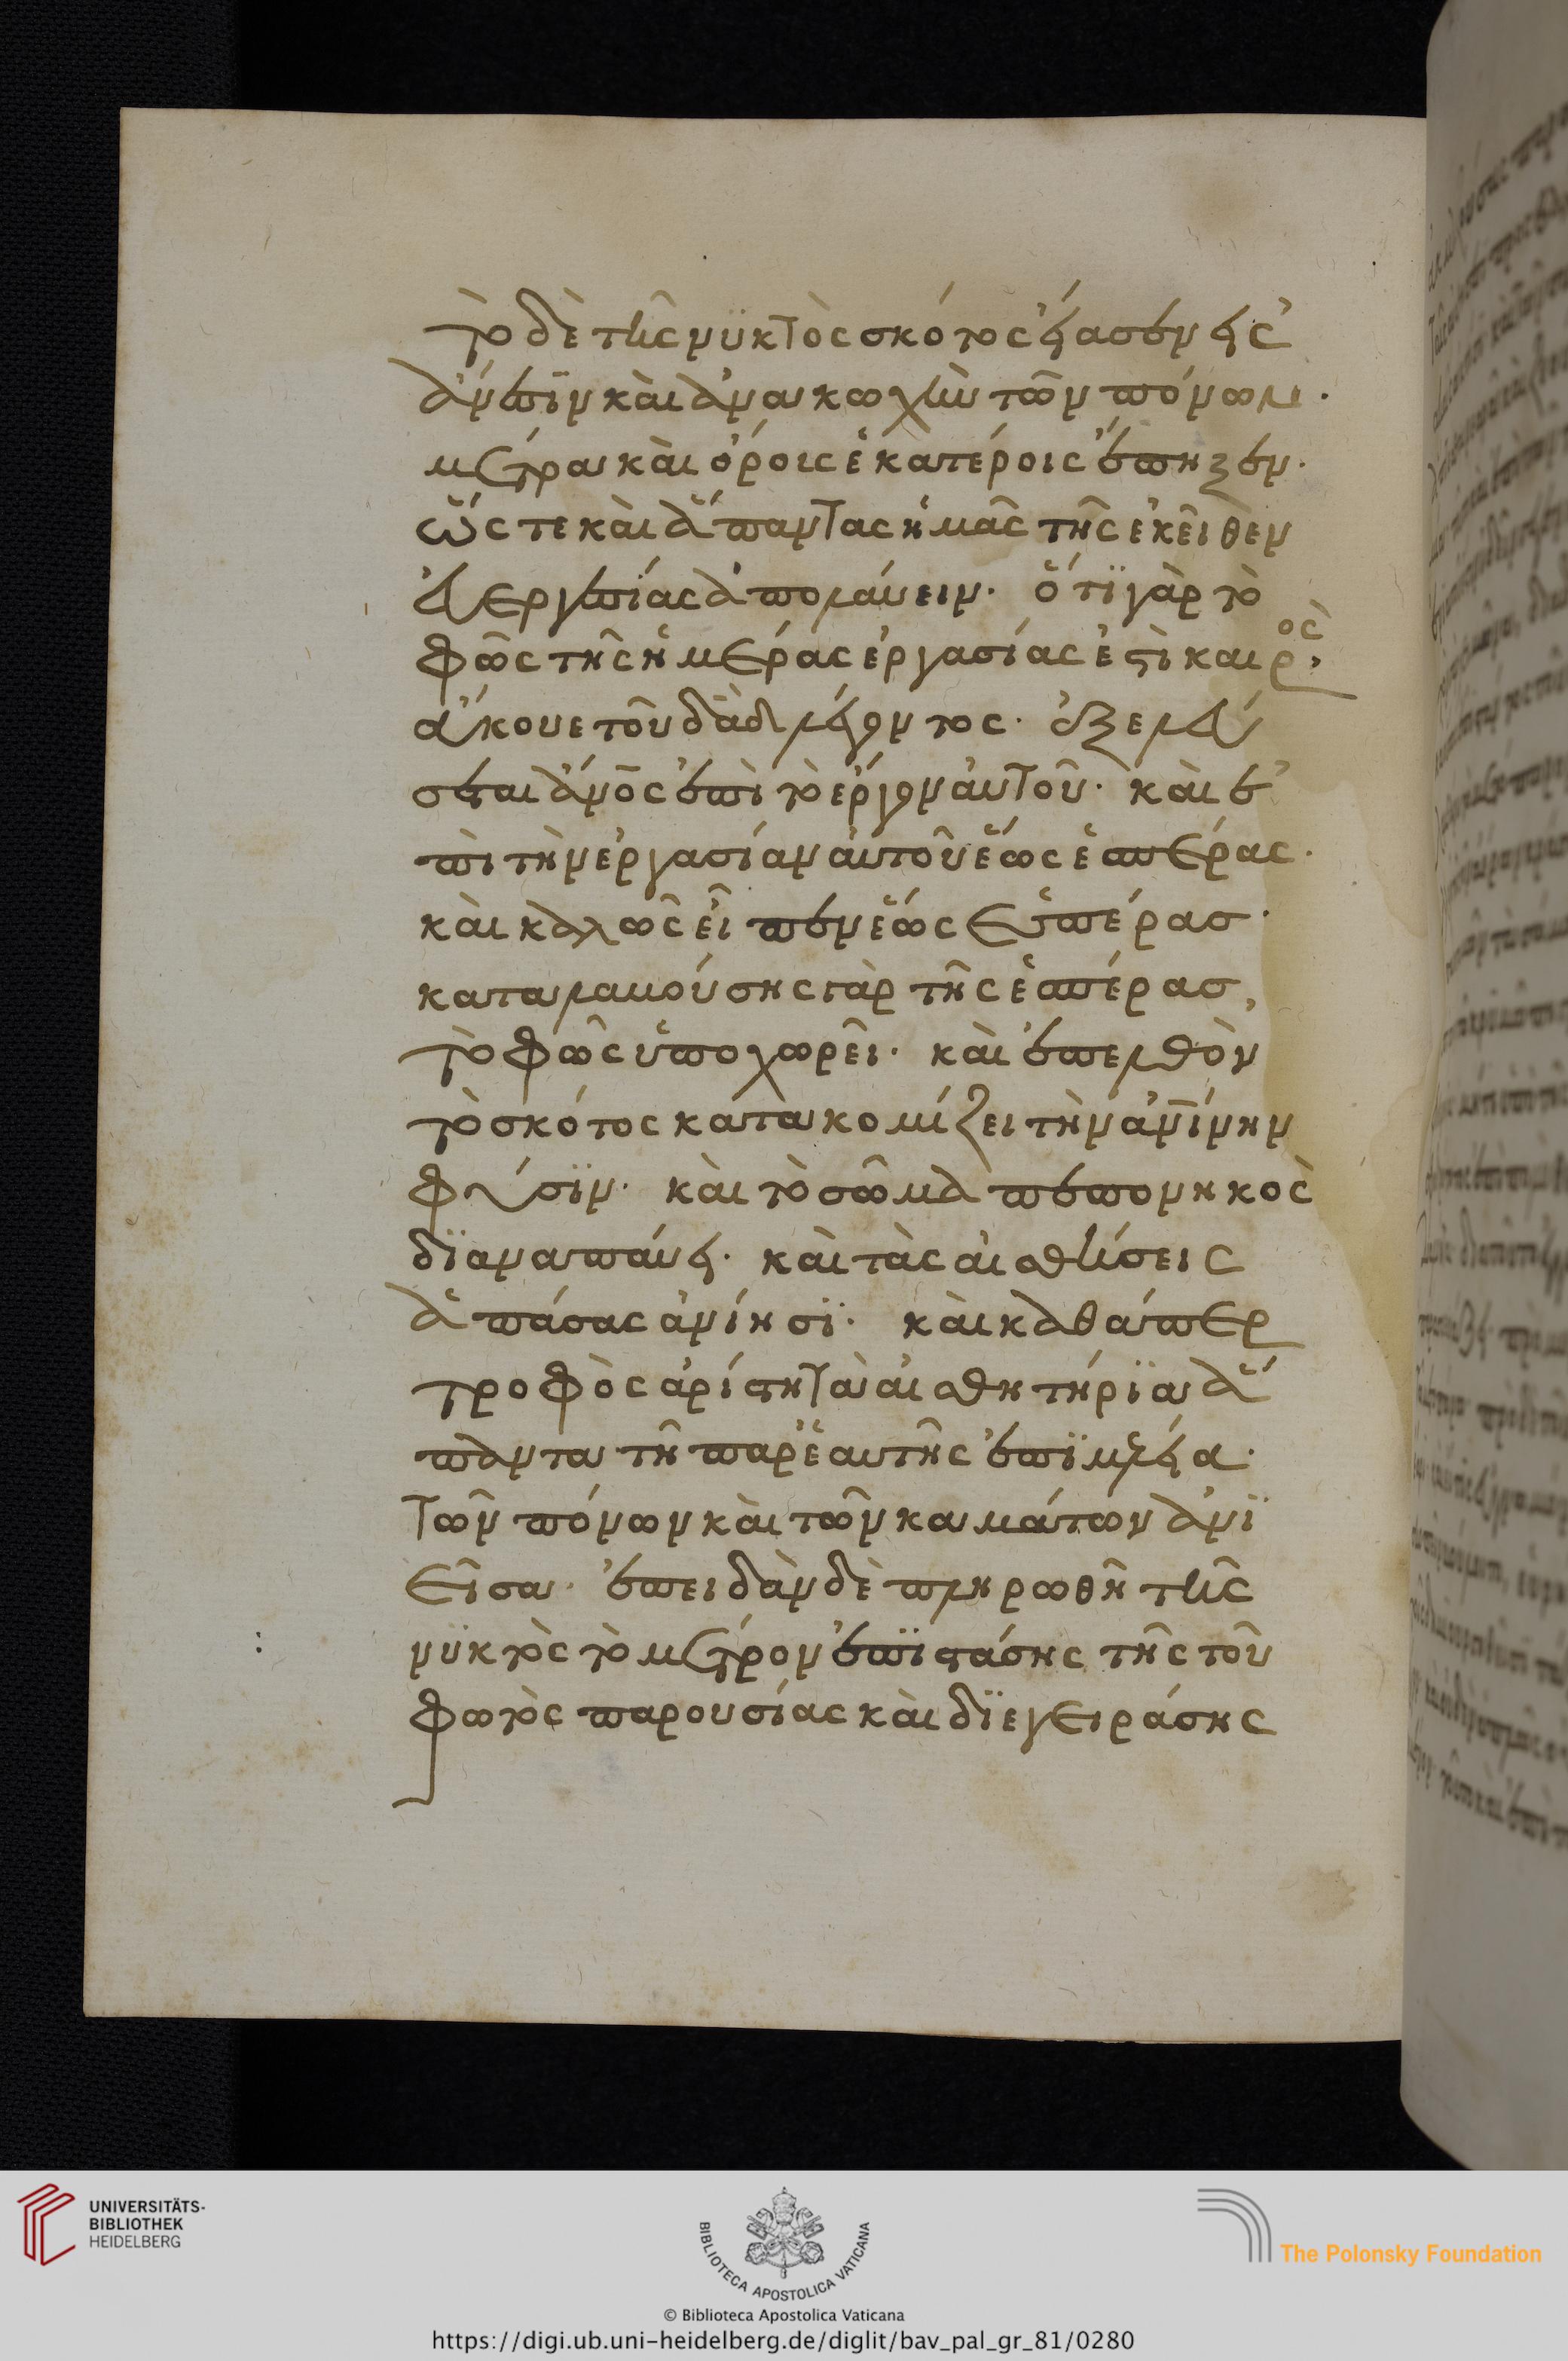 τὸ δὲ τῆς νϋκτὸς σκότος ἐάσασεν εἰς
ἄνεσϊν καὶ ἀνακωχὴν τῶν πόνων.
μέτρα καὶ ὅροις ἑκατέροις ἔπηξεν.
ὥς τε καὶ ἅπαντας ἡμᾶς τῆς ἐκεῖθεν
ἀπολαύειν. ὅτϊ γὰρ τὸ
φῶς τῆς ἡμέρας ἐργασίας ἐστὶ καιρὸς,
ἄκουε τοῦ δᾱδ λέγοντος. ἐξελεύ
σεται ἄνος ἐπὶ τὸ ἔργον αὐτοῦ. καὶ ἐ
πὶ τὴν ἐργασίαν αὐτοῦ ἕως ἑσπέρας.
καὶ καλῶς εἶπεν ἕως ἑσπέρασ.
καταλαμούσης γὰρ τῆς ἑσπέρασ,
τὸ φῶς ὑποχωρεῖ. καὶ ἐπελθὸν
τὸ σκότος κατακομίζει τὴν ἀνΐνην
φύσϊν. καὶ τὸ σῶμα πεπονηκὸς
δϊαναπαύει. καὶ τὰς αἰσθήσεις
ἁπάσας ἀνίησϊ. καὶ καθάπερ
τροφὸς ἀρίστη τὰ αἰσθητήρϊα ἅ
παντα τῆ παρ' ἑαυτῆς ἐπϊμελεία.
τῶν πόνων καὶ τῶν καμάτων ἀνϊ
εῖσα. ἐπειδὰν δὲ πληρωθῆ τῆς
νϋκτὸς τὸ μέτρον ἐπϊστάσης τῆς τοῦ
φωτὸς παρουσίας καὶ δϊεγειράσης
UNIVERSITÄTS-
BIBLIOTHEK
HEIDELBERG
BIBLIOTECA APOSTOLICA VATICANA
The Polonsky Foundation
© Biblioteca Apostolica Vaticana
https://digi.ub.uni-heidelberg.de/diglit/bav_pal_gr_81/0280